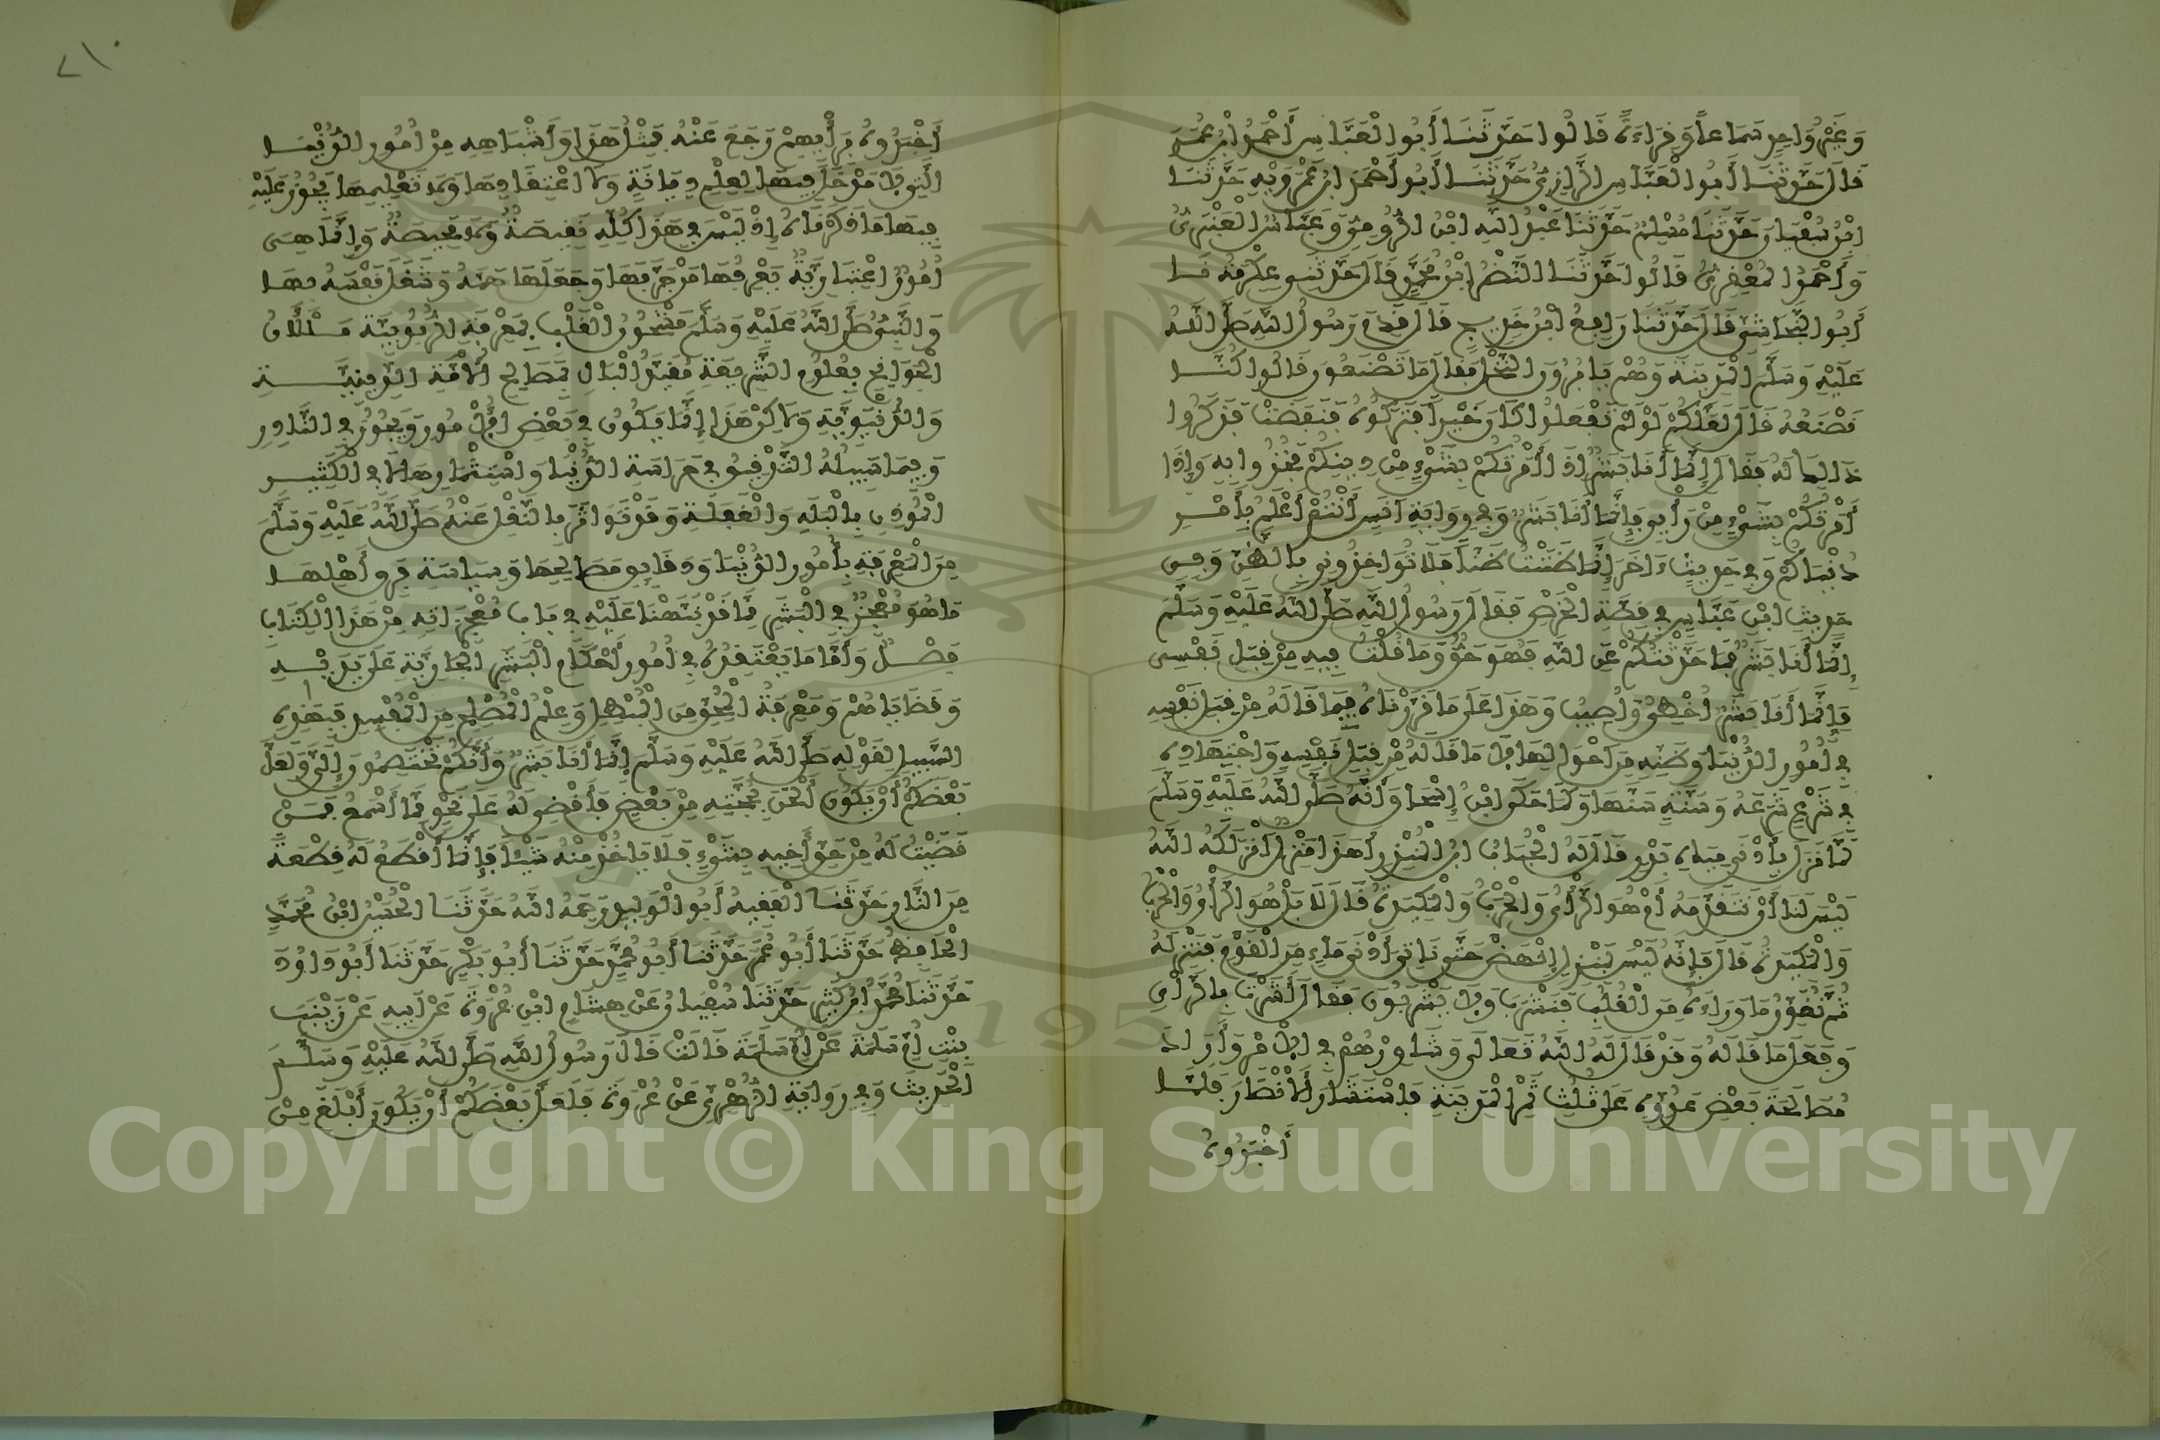 وَغَيْرُ وَاحِدٍ سَمَاعاً وَقِرَاءَةً قَالُوا حَدَّثَنَا أَبُو الْعَبَّاسِ أَحْمَدُ ابْنُ عُمَرَ
قَالَ حَدَّثَنَا أَبُو الْعَبَّاسِ الرَّازِيُّ حَدَّثَنَا أَبُو أَحْمَدَ ابْنُ عَمْرَوَيْهِ حَدَّثَنَا
ابْنُ سُفْيَانَ حَدَّثَنَا مُسْلِمٌ حَدَّثَنَا عَبْدُ اللَّهِ ابْنُ الرُّومِيِّ وَعَبَّاسٌ الْعَنْبَرِيُّ
وَأَحْمَدُ الْمَعْقِرِيُّ قَالُوا حَدَّثَنَا النَّضْرُ ابْنُ مُحَمَّدٍ قَالَ حَدَّثَنِي عِكْرِمَةُ نَا
أَبُو النَّجَاشِيِّ قَالَ حَدَّثَنَا رَافِعُ ابْنُ خَدِيجٍ قَالَ قَدِمَ رَسُولُ اللَّهِ صَلَّى اللَّهُ
عَلَيْهِ وَسَلَّمَ الْمَدِينَةَ وَهُمْ يَابُرُونَ النَّخْلَ فَقَالَ مَا تَصْنَعُونَ قَالُوا كُنَّا
نَصْنَعُهُ قَالَ لَعَلَّكُمْ لَوْ لَمْ تَفْعَلُوا كَانَ خَيْراً فَتَرَكُوهُ فَنَقَصَتْ فَذَكَرُوا
ذَالِكَ لَهُ فَقَالَ إِنَّمَا أَنَا بَشَرٌ إِذَا أَمَرْتُكُمْ بِشَيْءٍ مِنْ دِينِكُمْ فَخُذُوا بِهِ وَإِذَا
أَمَرْتُكُمْ بِشَيْءٍ مِنْ رَأْيِي فَإِنَّمَا أَنَا بَشَرٌ وَفِي رِوَايَةِ أَنَسٍ أَنْتُمْ أَعْلَمُ بِأَمْرِ
دُنْيَاكُمْ وَفِي حَدِيثٍ ءَاخَرَ إِنَّمَا ظَنَنْتُ ظَنّاً فَلَا تُوَاخِذُونِي بِالظَّنِّ وَفِي
حَدِيثِ ابْنِ عَبَّاسٍ فِي قِصَّةِ الْخَرْصِ فَقَالَ رَسُولُ اللَّهِ صَلَّى اللَّهُ عَلَيْهِ وَسَلَّمَ
إِنَّمَا أَنَا بَشَرٌ فَمَا حَدَّثْتُكُمْ عَنِ اللَّهِ فَهُوَ حَقٌّ وَمَا قُلْتُ فِيهِ مِنْ قِبَلِ نَفْسِي
فَإِنَّمَا أَنَا بَشَرٌ أُخْطِئُ وَأُصِيبُ وَهَذَا عَلَى مَا قَرَّرْنَاهُ فِيمَا قَالَهُ مِنْ قِبَلِ نَفْسِهِ
فِي أُمُورِ الدُّنْيَا وَظَنِّهِ مِنْ أَحْوَالِهَا لَا مَا قَالَهُ مِنْ قِبَلِ نَفْسِهِ وَاجْتِهَادِهِ
فِي شَرْعٍ شَرَعَهُ وَسُنَّةٍ سَنَّهَا وَكَمَا حَكَى ابْنُ إِسْحَاقَ أَنَّهُ صَلَّى اللَّهُ عَلَيْهِ وَسَلَّمَ
لَمَّا نَزَلَ بِأَدْنَى مِيَاهِ بَدْرٍ قَالَ لَهُ الْحُبَابُ ابْنُ الْمُنْذِرِ أَهَذَا مَنْزِلٌ أَنْزَلَكَهُ اللَّهُ
لَيْسَ لَنَا أَنْ نَتَقَدَّمَهُ أَمْ هُوَ الرَّأْيُ وَالْحَرْبُ وَالْمَكِيدَةُ قَالَ لَا بَلْ هُوَ الرَّأْيُ وَالْحَرْبُ
وَالْمَكِيدَةُ قَالَ فَإِنَّهُ لَيْسَ بِمَنْزِلٍ انْهَضْ حَتَّى نَاتِيَ أَدْنَى مَاءٍ مِنَ الْقَوْمِ فَنَنْزِلَهُ
ثُمَّ نُغَوِّرُ مَا وَرَاءَهُ مِنَ الْقُلُبِ فَنَشْرَبَ وَلَا يَشْرَبُونَ فَقَالَ أَشَرْتَ بِالرَّأْيِ
وَفَعَلَ مَا قَالَهُ وَقَدْ قَالَ لَهُ اللَّهُ تَعَالَى وَشَاوِرْهُمْ فِي الْأَمْرِ وَأَرَادَ
مُصَالَحَةَ بَعْضِ عَدُوِّهِ عَلَى ثُلُثِ ثَمَرِ الْمَدِينَةِ فَاسْتَشَارَ الْأَنْصَارَ فَلَمَّا
أَخْبَرُوهُ
أَخْبَرُوهُ بِرَأْيِهِمْ رَجَعَ عَنْهُ فَمِثْلُ هَذَا وَأَشْبَاهِهِ مِنْ أُمُورِ الدُّنْيَا
الَّتِي لَا مَدْخَلَ فِيهَا لِعِلْمِ دِيَانَةٍ وَلَا اعْتِقَادِهَا وَلَا تَعْلِيمِهَا يَجُوزُ عَلَيْهِ
فِيهَا مَا ذَكَرْنَاهُ إِذْ لَيْسَ فِي هَذَا كُلِّهِ نَقِيصَةٌ وَلَا مَحِيصَةٌ وَإِنَّمَا هِيَ
أُمُورٌ اعْتِيَادِيَّةٌ يَعْرِفُهَا مَنْ جَرَّبَهَا وَجَعَلَهَا هَمَّهُ وَشَغَلَ نَفْسَهُ بِهَا
وَالنَّبِيُّ صَلَّى اللَّهُ عَلَيْهِ وَسَلَّمَ مَشْحُونُ الْقَلْبِ بِمَعْرِفَةِ الرُّبُوبِيَّةِ مَلْآنُ
الْجَوَانِحِ بِعُلُومِ الشَّرِيعَةِ مُقَيَّدُ الْبَالِ بِمَصَالِحِ الْأُمَّةِ الدِّينِيَّةِ
وَالدُّنْيَوِيَّةِ وَلَاكِنْ هَذَا إِنَّمَا يَكُونُ فِي بَعْضِ الْأُمُورِ وَيَجُوزُ فِي النَّادِرِ
وَفِيمَا سَبِيلُهُ التَّدْقِيقُ فِي حَرَاسَةِ الدُّنْيَا وَاسْتِثْمَارِهَا لَا فِي الْكَثِيرِ
الْمُوذِنِ بِالْبَلَهِ وَالْغَفْلَةِ وَقَدْ تَوَاتَرَ بِالنَّقْلِ عَنْهُ صَلَّى اللَّهُ عَلَيْهِ وَسَلَّمَ
مِنَ الْمَعْرِفَةِ بِأُمُورِ الدُّنْيَا وَدَقَايِقِ مَصَالِحِهَا وَسِيَاسَةِ فِرَقِ أَهْلِهَا
مَا هُوَ مُعْجِزٌ فِي الْبَشَرِ مِمَّا قَدْ نَبَّهْنَا عَلَيْهِ فِي بَابِ مُعْجِزَاتِهِ مِنْ هَذَا الْكِتَابِ
فَصْلٌ وَأَمَّا مَا يَعْتَقِدُهُ فِي أُمُورِ أَحْكَامِ الْبَشَرِ الْجَارِيَةِ عَلَى يَدَيْهِ
وَقَضَايَاهُمْ وَمَعْرِفَةُ الْمُحِقِّ مِنَ الْمُبْطِلِ وَعِلْمُ الْمُصْلِحِ مِنَ الْمُفْسِدِ فَبِهَذِهِ
السَّبِيلِ لِقَوْلِهِ صَلَّى اللَّهُ عَلَيْهِ وَسَلَّمَ إِنَّمَا أَنَا بَشَرٌ وَأَنَّكُمْ تَخْتَصِمُونَ إِلَيَّ وَلَعَلَّ
بَعْضَكُمْ أَنْ يَكُونَ أَلْحَنَ بِحُجَّتِهِ مِنْ بَعْضٍ فَأَقْضِي لَهُ عَلَى نَحْوٍ مِمَّا أَسْمَعُ فَمَنْ
قَضَيْتُ لَهُ مِنْ حَقِّ أَخِيهِ بِشَيْءٍ فَلَا يَاخُذْ مِنْهُ شَيْئاً فَإِنَّمَا أَقْطَعُ لَهُ قِطْعَةً
مِنَ النَّارِ حَدَّثَنَا الْفَقِيهُ أَبُو الْوَلِيدِ رَحِمَهُ اللَّهُ حَدَّثَنَا الْحُسَيْنُ ابْنُ مُحَمَّدٍ
الْحَافِظُ حَدَّثَنَا أَبُو عُمَرَ حَدَّثَنَا أَبُو مُحَمَّدٍ حَدَّثَنَا أَبُو بَكْرٍ حَدَّثَنَا أَبُو دَاوُدَ
حَدَّثَنَا مُحَمَّدُ ابْنُ كَثِيرٍ حَدَّثَنَا سُفْيَانُ عَنْ هِشَامِ ابْنِ عُرْوَةَ عَنْ أَبِيهِ عَنْ زَيْنَبَ
بِنْتِ أُمِّ سَلَمَةَ عَنْ أُمِّ سَلَمَةَ قَالَتْ قَالَ رَسُولُ اللَّهِ صَلَّى اللَّهُ عَلَيْهِ وَسَلَّمَ
الْحَدِيثَ وَفِي رِوَايَةِ الزُّهْرِيِّ عَنْ عُرْوَةَ فَلَعَلَّ بَعْضَكُمْ أَنْ يَكُونَ أَبْلَغَ مِنْ
Copyright © King Saud University
1957